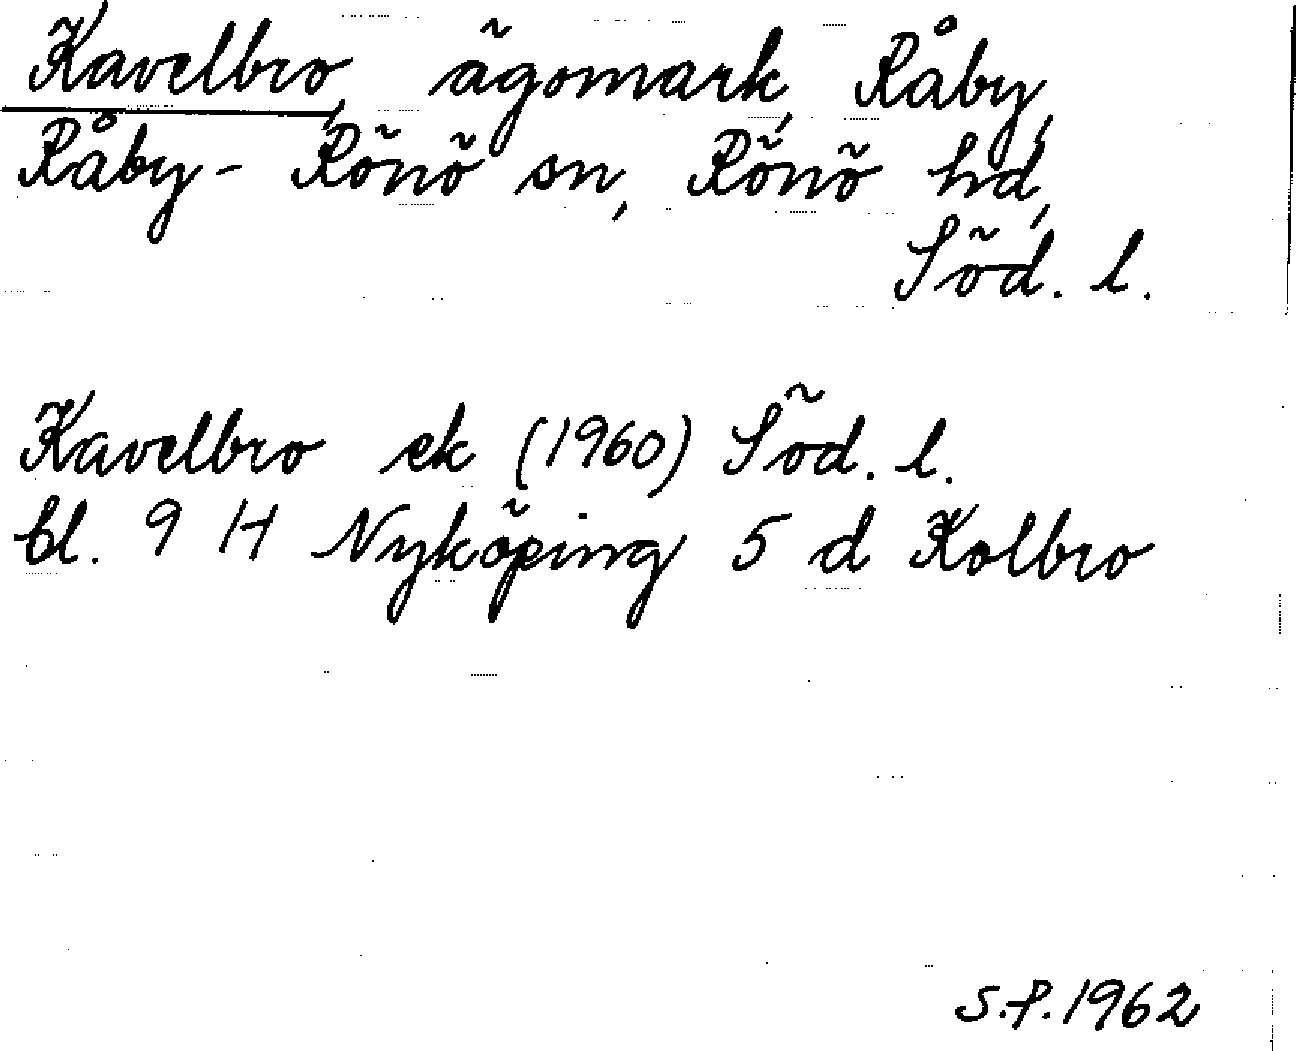 Kavelbro, ägomark, Råby,
Råby-Rönö sn, Rönö hd,
Söd. l.
Kavelbro ek (1960) Söd. l.
bl. 9 H Nyköping 5 d Kolbro
S.P. 1962